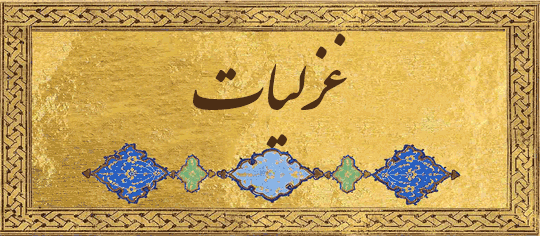 غزلیات